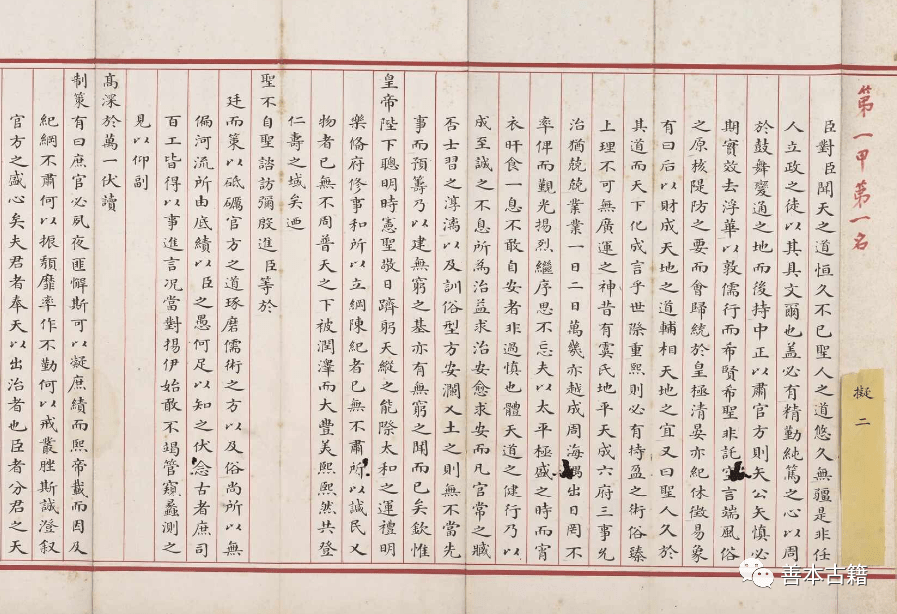 第一甲第一名
擬二
臣對臣聞天之道恒久不已聖人之道悠久無疆是非任
人立政之徒以其具文爾也蓋必有精勤純篤之心以周
於鼓舞變通之地而後持中正以肅官方則矢公矢慎必
期實效去浮華以敦儒行而希賢希聖非託空言端風俗
之原核隄防之要而會歸統於皇極清晏亦紀休徵易象
有曰后以財成天地之道輔相天地之宜又曰聖人久於
其道而天下化成言乎世際重熙則必有持盈之術俗臻
上理不可無廣運之神昔有虞氏地平天成六府三事允
治猶兢兢業業一日二日萬幾亦越成周海隅出日罔不
率俾而覲光揚烈繼序思不忘夫以太平極盛之時而宵
衣旰食一息不敢自安者非過慎也體天道之健行乃以
成至誠之不息所為治益求治安愈求安而凡官常之臧
否士習之淳漓以及訓俗型方安瀾乂土之則無不當先
事而預籌乃以建無窮之基亦有無窮之聞而已矣欽惟
皇帝陛下聰明時憲聖敬日躋躬天縱之能際太和之運禮明
樂備府修事和所以立綱陳紀者已無不肅所以諴民又
物者已無不周普天之下被潤澤而大豐美熙熙然共登
仁壽之域矣迺
聖不自聖諮訪彌殷進臣等於
廷而策以砥礪官方之道琢磨儒術之方以及俗尚所以無
偏河流所由底績以臣之愚何足以知之伏念古者庶司
百工皆得以事進言況當對揚伊始敢不竭管窺蠡測之
見以仰副
高深於萬一伏讀
制策有曰庶官必夙夜匪懈斯可以凝庶績而熙帝載而因及
紀綱不肅何以振頹靡率作不勤何以戒叢脞斯誠澄敘
官方之盛心矣夫君者奉天以出治者也臣者分君之天
善本古籍